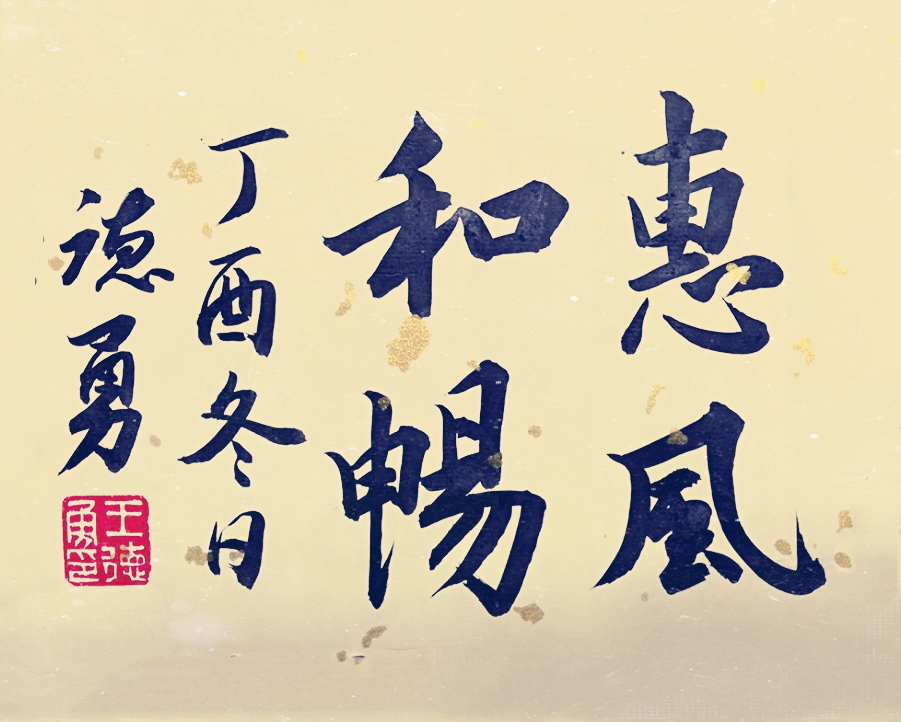 惠風
和暢
丁酉冬日
德勇
王德
勇